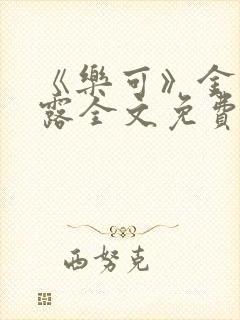 《樂可》金
露全文免費
西努克